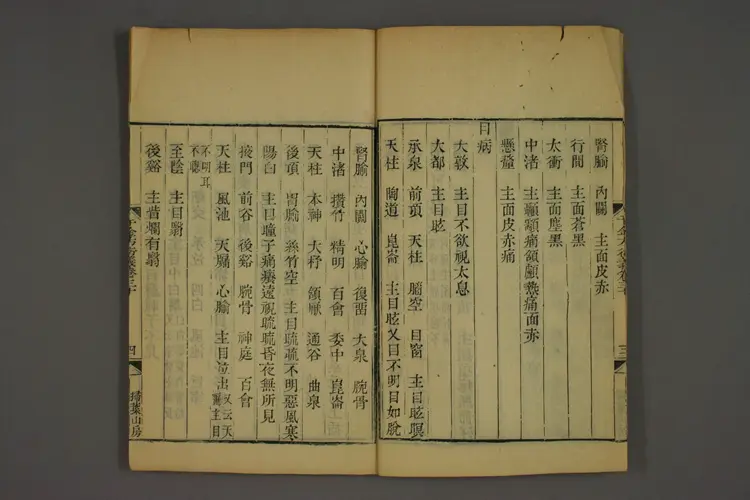 腎腧 內關 主面皮赤
行間 主面蒼黑
太衝 主面塵黑
中渚 主顳顬痛頷顱熱痛面赤
懸釐 主面皮赤痛
目病
大敦 主目不欲視太息
大都 主目眩
承泉 前頂 天柱 腦空 目窗 主目眩瞑
天柱 陶道 崑崙 主目眩又目不明目如脫
腎腧 內關 心腧 復溜 大泉 腕骨
中渚 攢竹 精明 百會 委中 崑崙
天柱 本神 大杼 頷厭 通谷 曲泉
後頂 胃腧 絲竹空 主目𥆨𥆨不明惡風寒
陽白 主目瞳子痛癢遠視𥆨𥆨昏夜無所見
掖門 前谷 後谿 腕骨 神庭 百會
天柱 風池 天牖 心腧 主目泣出又云天牖主目
不明耳不聰
至陰 主目翳
後谿 主眥爛有翳
三
四
掃葉山房